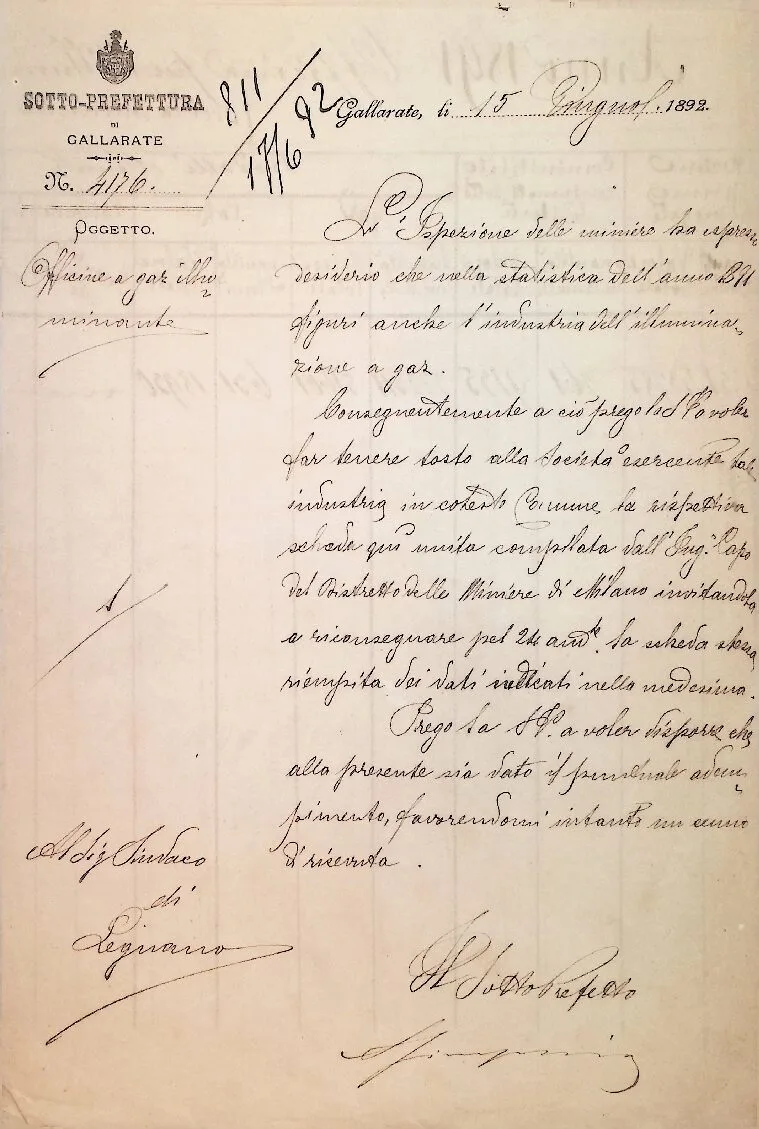 SOTTO-PREFETTURA
DI
GALLARATE
N. 4176.
OGGETTO.
Officine a gaz illu-
minante
811
17/6 92
Gallarate, li 15 Giugno 1892.
L'Ispezione delle miniere ha espresso
desiderio che nella statistica dell'anno 1891
figuri anche l'industria dell'illumina-
zione a gaz.
Conseguentemente a ciò prego la S.V. a voler
far tenere tosto alla Società esercente tale
industria in cotesto Comune, la rispettiva
scheda qui unita compilata dall'Ing. Capo
del Distretto delle Miniere di Milano invitandola
a riconsegnare pel 24 and.te la scheda stessa
riempita dei dati indicati nella medesima.
Prego la S.V. a voler disporre che
alla presente sia dato il puntuale adem-
pimento, favorendomi intanto un cenno
di ricevuta.
Al Sig Sindaco
di
Legnano
Il Sotto Prefetto